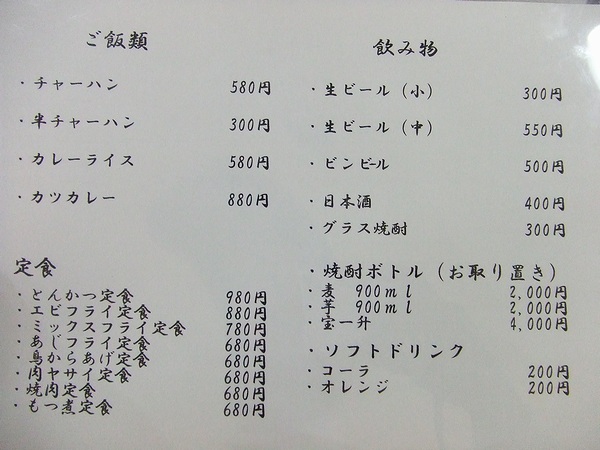 ご飯類
・チャーハン 580円
・半チャーハン 300円
・カレーライス 580円
・カツカレー 880円
定食
・とんかつ定食 980円
・エビフライ定食 880円
・ミックスフライ定食 780円
・あじフライ定食 680円
・鳥からあげ定食 680円
・肉ヤサイ定食 680円
・焼肉定食 680円
・もつ煮定食 680円
飲み物
・生ビール（小） 300円
・生ビール（中） 550円
・ビンビール 500円
・日本酒 400円
・グラス焼酎 300円
・焼酎ボトル（お取り置き）
・麦 900ml 2,000円
・芋 900ml 2,000円
・宝一升 4,000円
・ソフトドリンク
・コーラ 200円
・オレンジ 200円